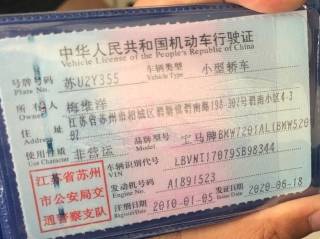 中华人民共和国机动车行驶证
Vehicle License of the People's Republic of China
号牌号码 苏U2Y355 车辆类型 小型轿车
Plate No. Vehicle Type
所有人 梅维洋
Owner
住址 江苏省苏州市相城区
Address
使用性质 非营运 品牌型号 宝马牌
Use Character Model
江苏省苏州
市公安局交
通警察支队
车辆识别代号
VIN
发动机号码 A1891523
Engine No.
注册日期 2010-01-05 发证日期 2020-06-18
Register Date Issue Date